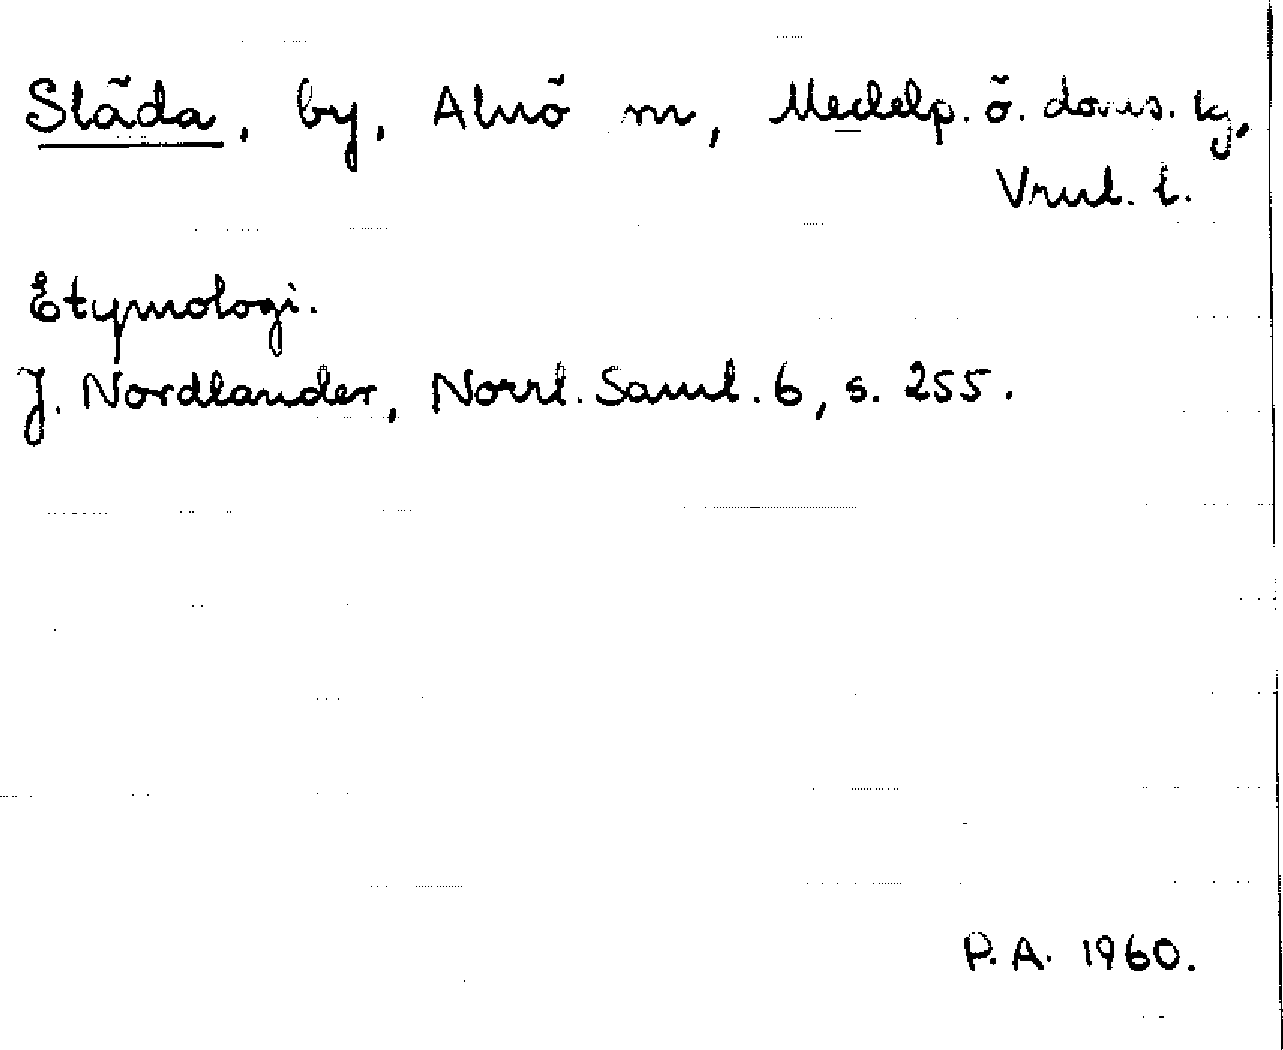 Släda, by, Alnö sn, Medelp. ö. doms. tg,
Vnl. l.
Etymologi.
J. Nordlander, Norrl. Saml. 6, s. 255.
P. A. 1960.